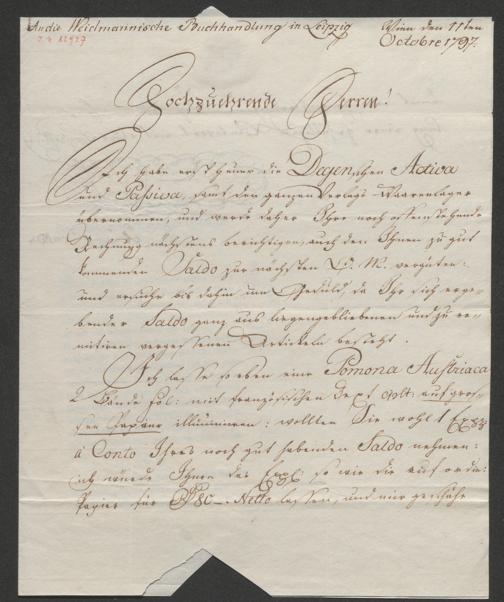 An die Weidmannische Buchhandlung in Leipzig
Wien den 11ten
Octobre 1797.
Hochzuehrende Herren!
Ich habe erst heuer die Degenschen Activa
und Passiva, samt den ganzen Verlags Waarenlager
übernommen, und werde daher Ihre noch offen stehende
Rechnung nächstens berichtigen, auch den Ihnen zu gut
kommenden Saldo zur nächsten L. M. vergüten:
und ersuche bis dahin um Geduld, da Ihr sich erge-
bender Saldo ganz aus liegengebliebenen und zu re-
mitiren vergessenen Artikeln besteht.
Ich lasse soeben eine Pomona Austriaca
2 Bände fol: mit französischen Text auf gros-
sen Papier illuminiren: wollten Sie wohl 1 Expl
à Conto Ihres noch gut habenden Saldo nehmen:
ich würde Ihnen das Expl: so wie die auf ordin:
Papier für Netto lassen, und nur